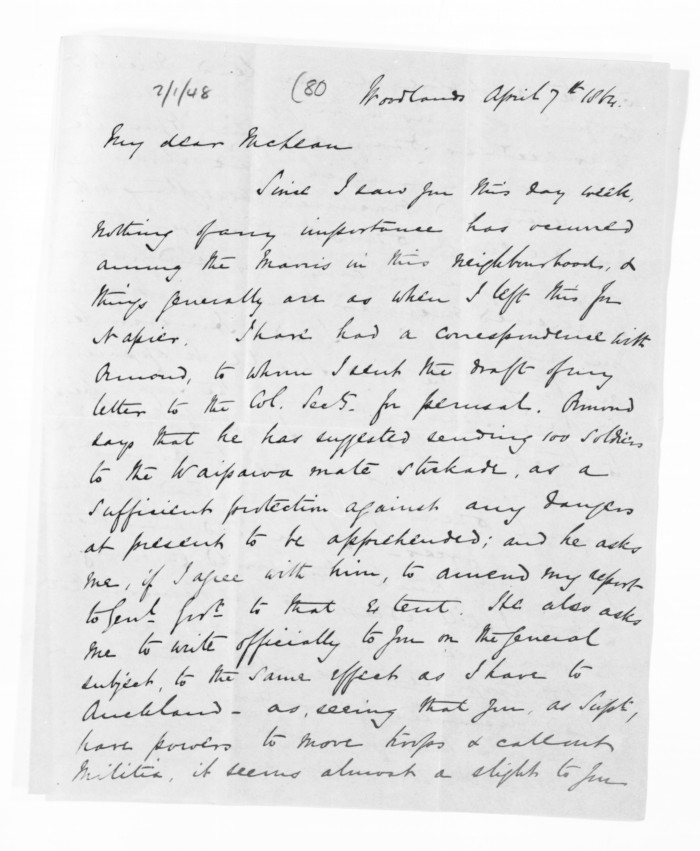 2/1/48 (80 Woodlands April 7th 1864.
My dear McLean
Since I saw you this day week,
nothing of any importance has occurred
among the Maoris in this neighbourhood, &
things generally are as when I left this for
Napier. I have had a correspondence with
Ormond, to whom I sent the draft of my
letter to the Col. Secty. for perusal. Ormond
says that he has suggested sending 100 soldiers
to the Waipawa mate stockade, as a
sufficient protection against any dangers
at present to be apprehended; and he asks
me, if I agree with him, to amend my report
to Genl. Govt. to that extent. He also asks
me to write officially to you on the general
subject, to the same effect as I have to
Auckland - as, seeing that you, as Supt.,
have powers to move troops & call out
Militia, it seems almost a slight to you